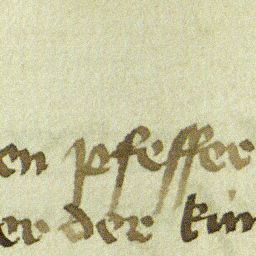 en pfeffer
er der kin